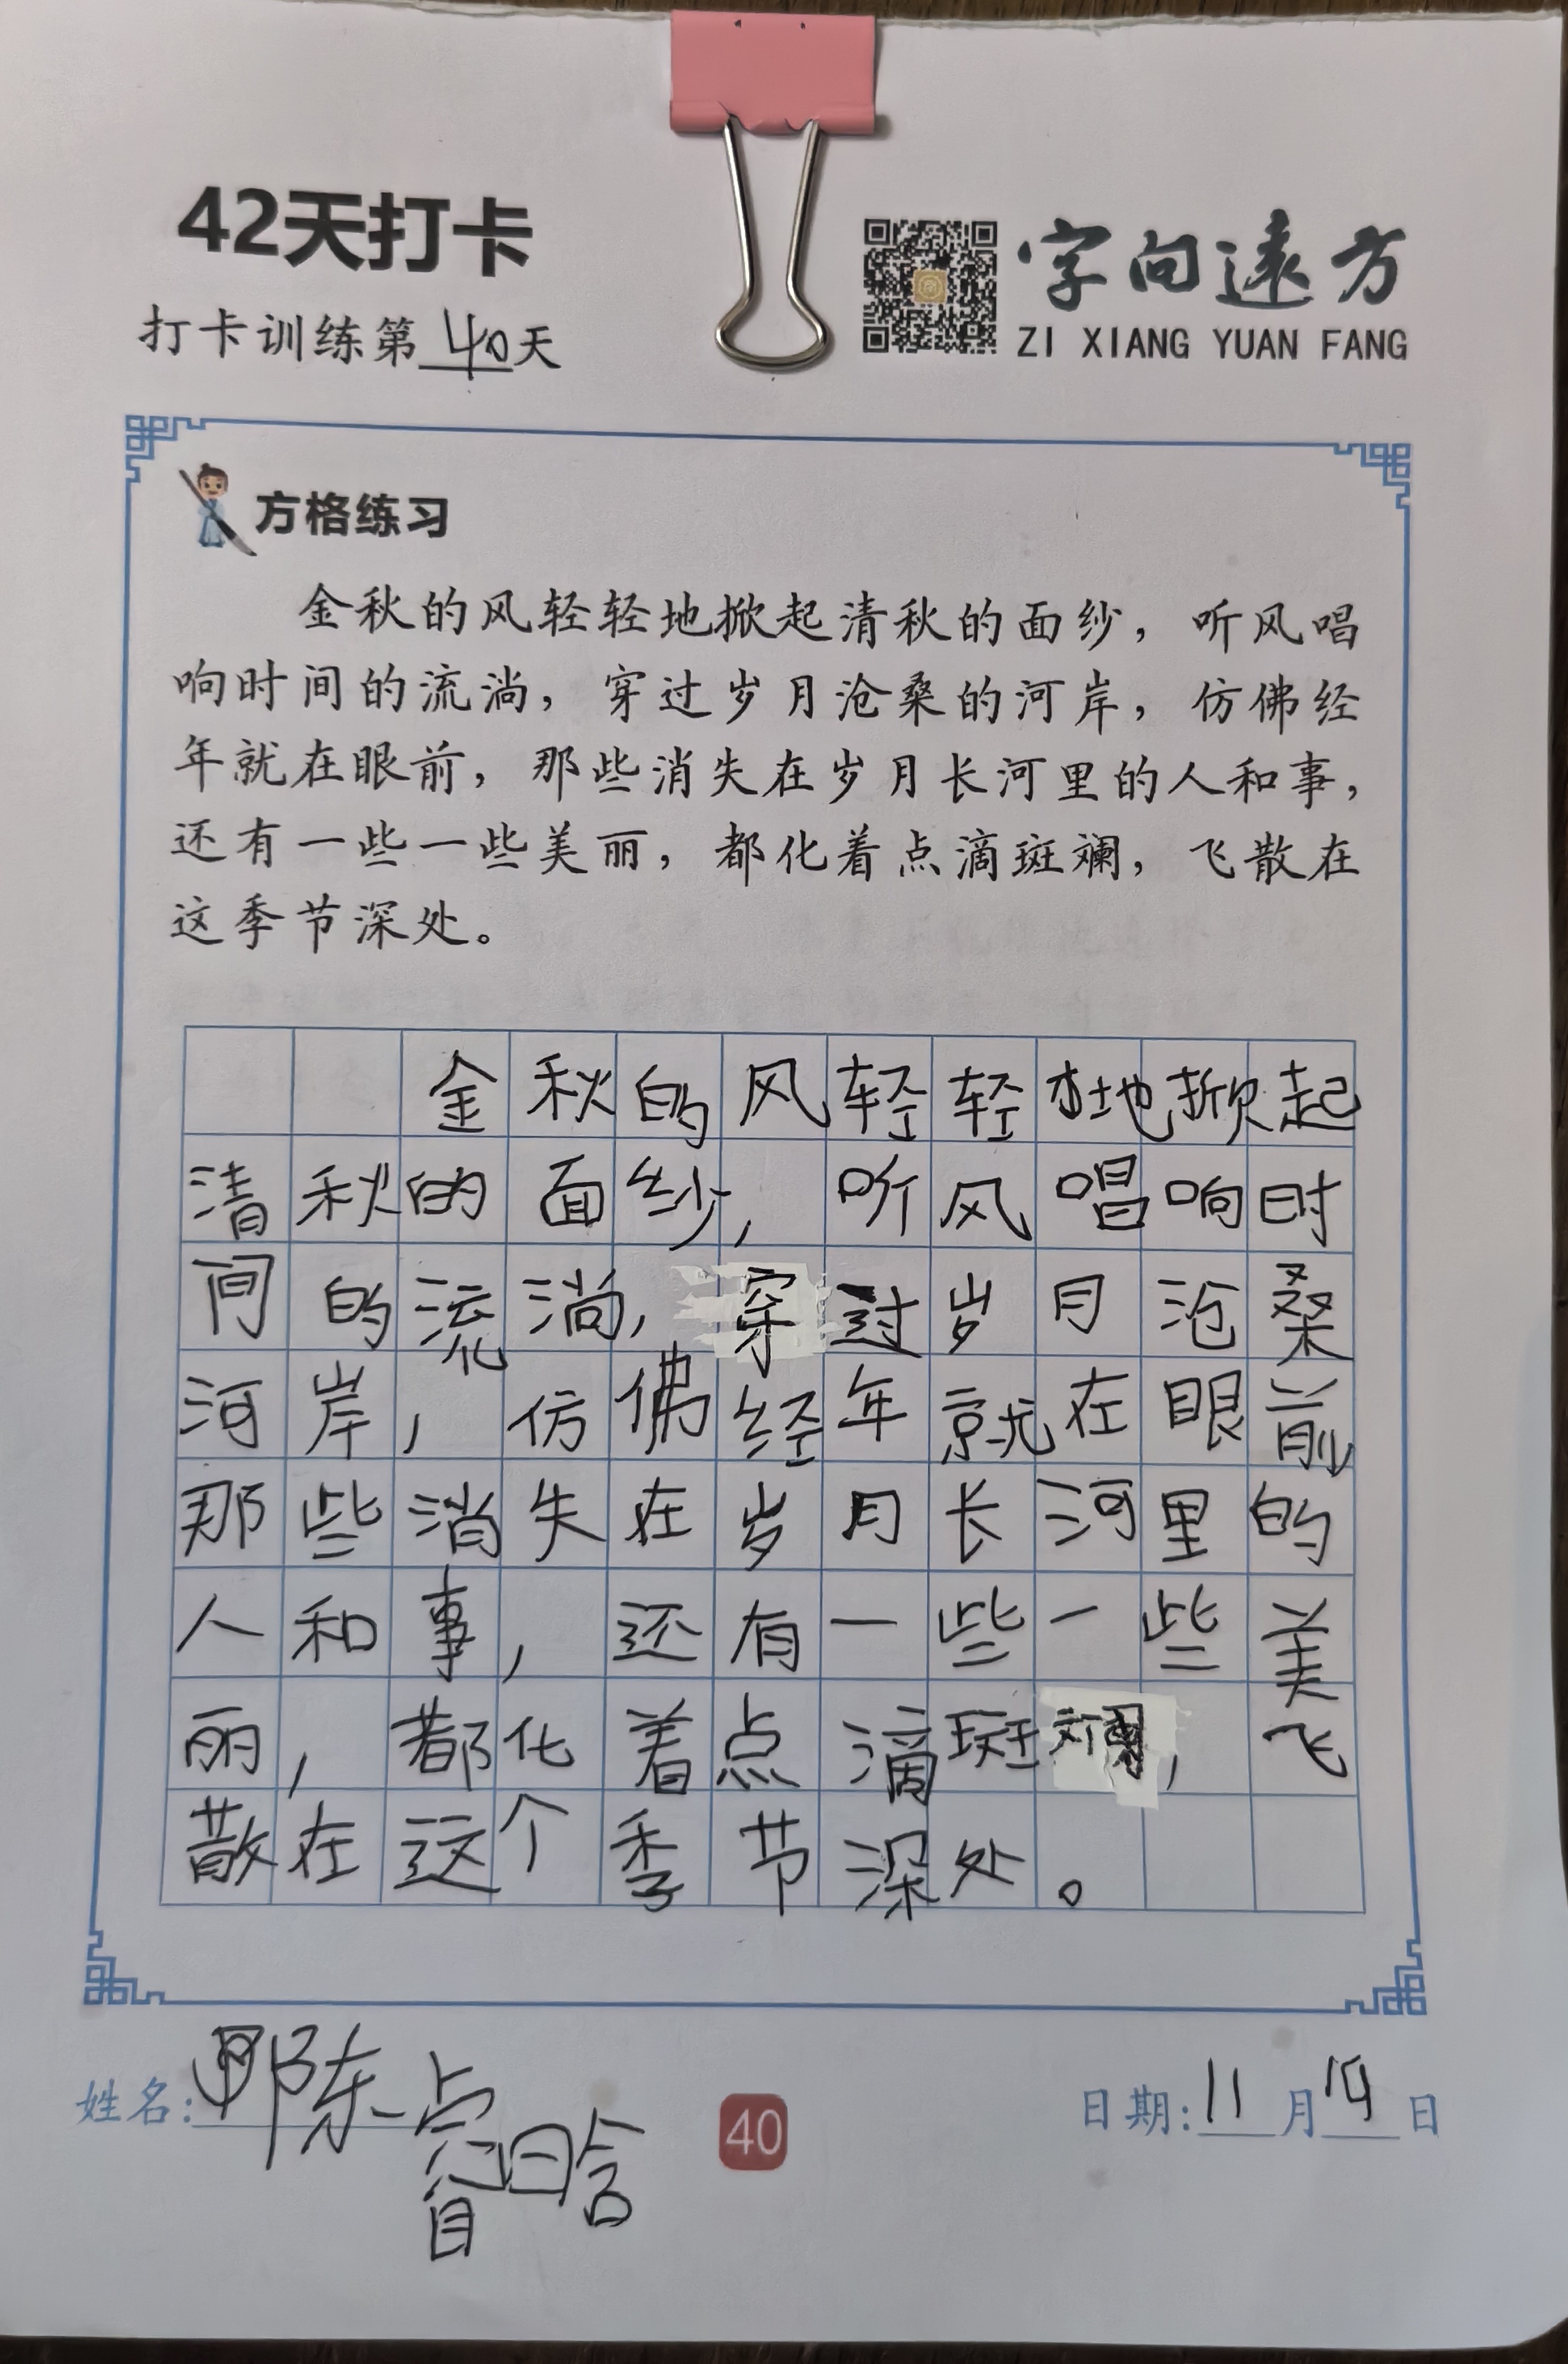 42天打卡
打卡训练第40天
字向遠方
ZI XIANG YUAN FANG
方格练习
金秋的风轻轻地掀起清秋的面纱，听风唱
响时间的流淌，穿过岁月沧桑的河岸，仿佛经
年就在眼前，那些消失在岁月长河里的人和事，
还有一些一些美丽，都化着点滴斑斓，飞散在
这季节深处。
金秋的风轻轻地掀起
清秋的面纱，听风唱响时
间的流淌，穿过岁月沧桑
河岸，仿佛经年就在眼前
那些消失在岁月长河里的
人和事，还有一些一些美
丽，都化着点滴斑斓，飞
散在这个季节深处。
姓名：
40
日期：11月19日